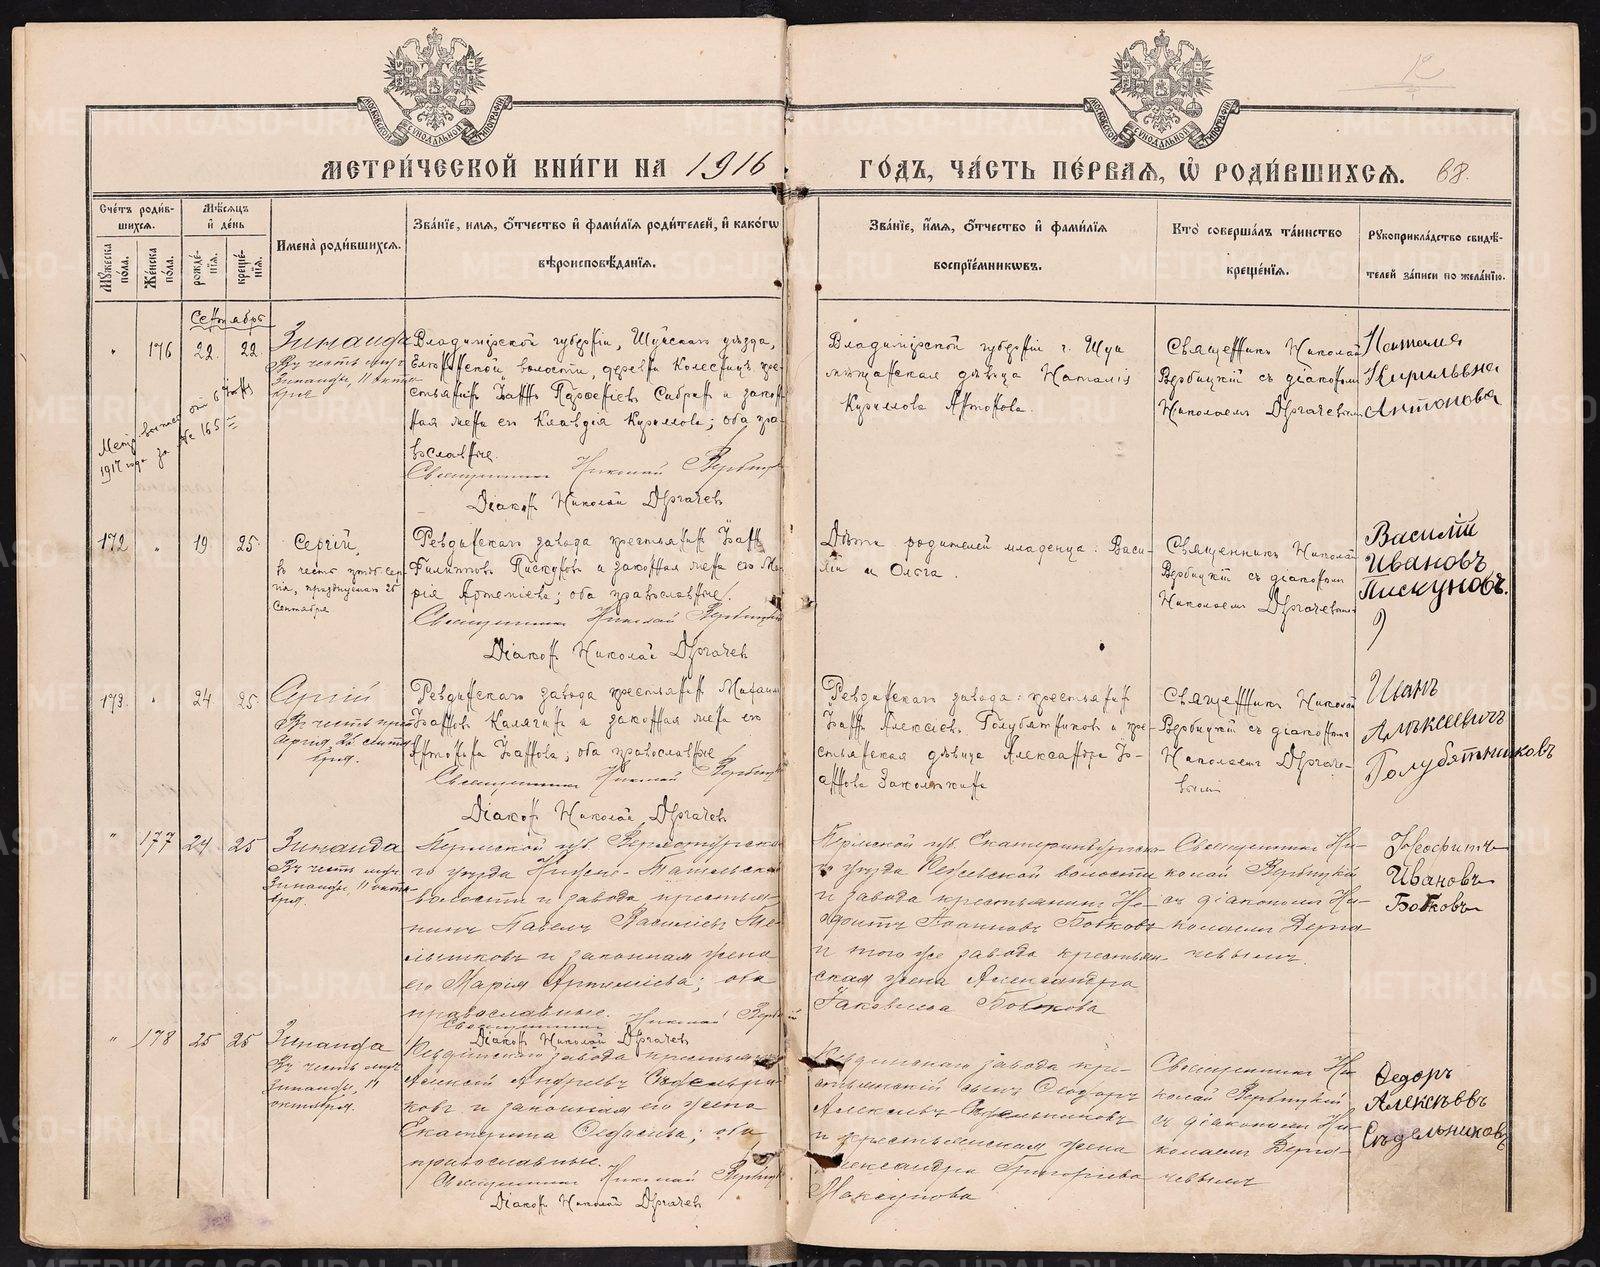 МЕТРИ́ЧЕСКОЙ КНИ́ГИ НА 1916
ГО́ДЪ, ЧА́СТЬ ПЕ́РВАЯ, Ѡ РОДИ́ВШИХСЯ. 68.
МОСКОВСКОЙ СѴНОДАЛЬНОЙ ТИПОГРАФІИ
МОСКОВСКОЙ СѴНОДАЛЬНОЙ ТИПОГРАФІИ
Сче́тъ роди́в-
шихся.
Мꙋ́жеска по́ла.
Же́нска по́ла.
Мѣ́сяцъ
и҆ де́нь
рожде́-
нїя.
креще́-
нїя.
И҆мена̀ роди́вшихся.
Зва́нїе, и҆мя, ѻ҆́тчество и҆ фами́лїя роди́телей, и҆ како́гѡ
вѣроисповѣ́данїя.
Зва́нїе, и҆́мя, ѻ҆́тчество и҆ фами́лїя
воспрїе́мникѡвъ.
Кто̀ соверша́лъ та́инство
креще́нїя.
Рꙋкоприкла́дство свидѣ́-
телей за́писи по жела́нїю.
Сентябрь
" 176 22 22
Зинаида
Въ честь муч.
Зинаиды, 11 октя-
бря
Владимірской губерніи, Шуйскаго уѣзда,
волости, деревни Колесницъ кре-
стьянинъ Іоаннъ и закон-
ная жена его Клавдія Кирилова; оба пра-
вославные.
Священникъ Николай Вербицкій
Діаконъ Николай Дергачевъ
Владимірской губерніи г. Шуи
мѣщанская дѣвица Наталія
Кирилова Антонова.
Священникъ Николай
Вербицкій съ діакономъ
Николаемъ Дергачевымъ
Наталія
Кирильевна
Антонова
1917 года за № 165
172 " 19 25
Сергій,
въ честь преп. Сер-
гія, празднуемаго 25
Сентября
Ревдинскаго завода крестьянинъ Іоаннъ
Филипповъ Пискуновъ и законная жена его Ма-
рія Артеміева; оба православные.
Священникъ Николай Вербицкій
Діаконъ Николай Дергачевъ
Дѣти родителей младенца: Васи-
лій и Ольга.
Священникъ Николай
Вербицкій съ діакономъ
Николаемъ Дергачевымъ
Василій
Ивановъ
Пискуновъ.
173 " 24 25
Сергій
Въ честь преп.
Сергія, 25 сентя-
бря.
Ревдинскаго завода крестьянинъ Михаилъ
Іоанновъ Калягинъ и законная жена его
Антонина Іоаннова; оба православные
Священникъ Николай Вербицкій
Діаконъ Николай Дергачевъ
Ревдинскаго завода: крестьянинъ
Іоаннъ Алексіевъ Голубятниковъ и кре-
стьянская дѣвица Александра Іо-
аннова
Священникъ Николай
Вербицкій съ діакономъ
Николаемъ Дергаче-
вымъ
Иванъ
Алексѣевичъ
Голубятниковъ
" 177 24 25
Зинаида
Въ честь муч.
Зинаиды, 11 октя-
бря.
Пермской губ. Верхотурска-
го уѣзда Нижне-Тагильской
волости и завода крестья-
нинъ Павелъ Василіевъ Ме-
лышковъ и законная жена
его Марія Артеміева; оба
православные.
Священникъ Николай Вербицкій
Діаконъ Николай Дергачевъ
Пермской губ. Екатеринбургска-
го уѣзда волости
и завода крестьянинъ Не-
офитъ Іоанновъ Бобковъ
и того же завода крестьян-
ская жена Александра
Іаковлева Бобкова
Священникъ Ни-
колай Вербицкій
съ діакономъ Ни-
колаемъ Дерга-
чевымъ.
Неофитъ
Ивановъ
Бобковъ
" 178 25 25
Зинаида
Въ честь муч.
Зинаиды, 11
октября.
Ревдинскаго завода крестьянинъ
Алексій Андреевъ Сѣдельни-
ковъ и законная его жена
Екатерина; оба
православные.
Священникъ Николай Вербицкій
Діаконъ Николай Дергачевъ
Ревдинскаго завода кре-
стьянскій сынъ Ѳеодоръ
Алексіевъ Сѣдельниковъ
и крестьянская жена
Александра Григоріева
Максунова
Священникъ Ни-
колай Вербицкій
съ діакономъ Ни-
колаемъ Дерга-
чевымъ
Ѳедоръ
Алексѣевъ
Сѣдельниковъ
METRIKI.GASO-URAL.RU